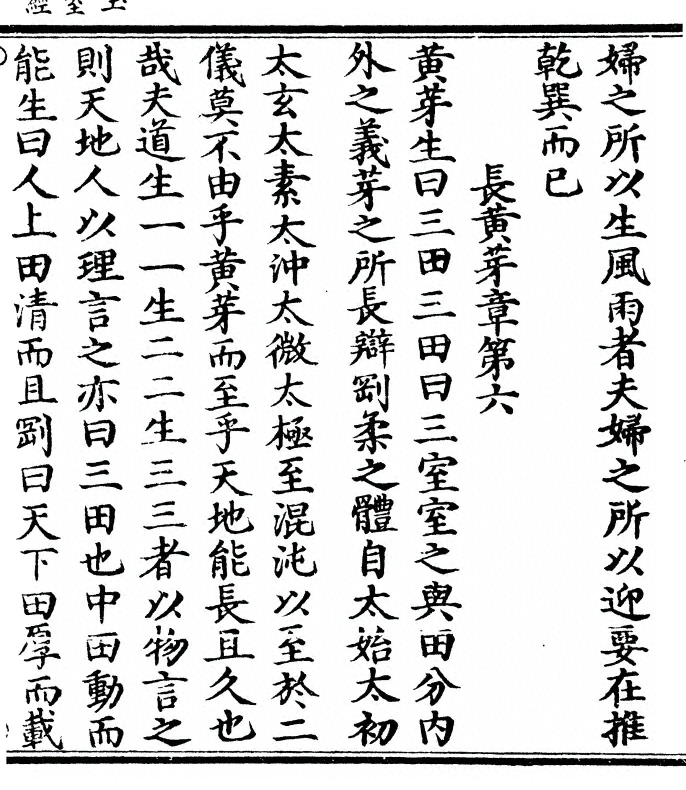 婦之所以生風雨者夫婦之所以迎要在推
乾巽而已
長黄芽章第六
黄芽生曰三田三田曰三室室之與田分内
外之義芽之所長辯剛柔之體自太始太初
太玄太素太沖太微太極至混沌以至於二
儀莫不由乎黄芽而至乎天地能長且久也
哉夫道生一一生二二生三三者以物言之
則天地人以理言之亦曰三田也中田動而
能生曰人上田清而且剛曰天下田厚而載